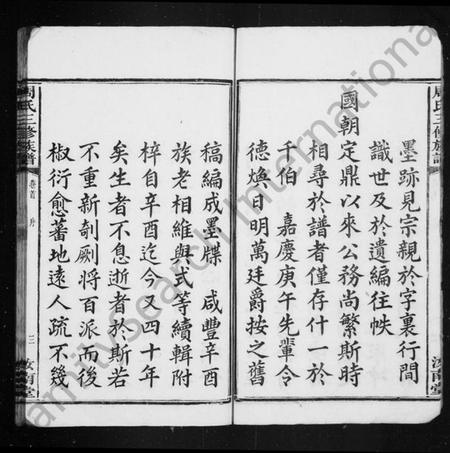 墨跡見宗親於字裏行間
識世及於遺編往帙
國朝定鼎以來公務尚繁斯時
相尋於譜者僅存什一於
千伯　嘉慶庚午先輩令
德煥日明萬廷爵按之舊
稿編成墨牒　咸豐辛酉
族老相維與式等續輯附
梓自辛酉迄今又四十年
矣生者不息逝者於斯若
不重新剞劂將百派而後
椒衍愈蕃地遠人疏不幾
周氏三修族譜
卷首　序
三
汝南堂
周氏三修族譜
汝南堂
FamilySearch International